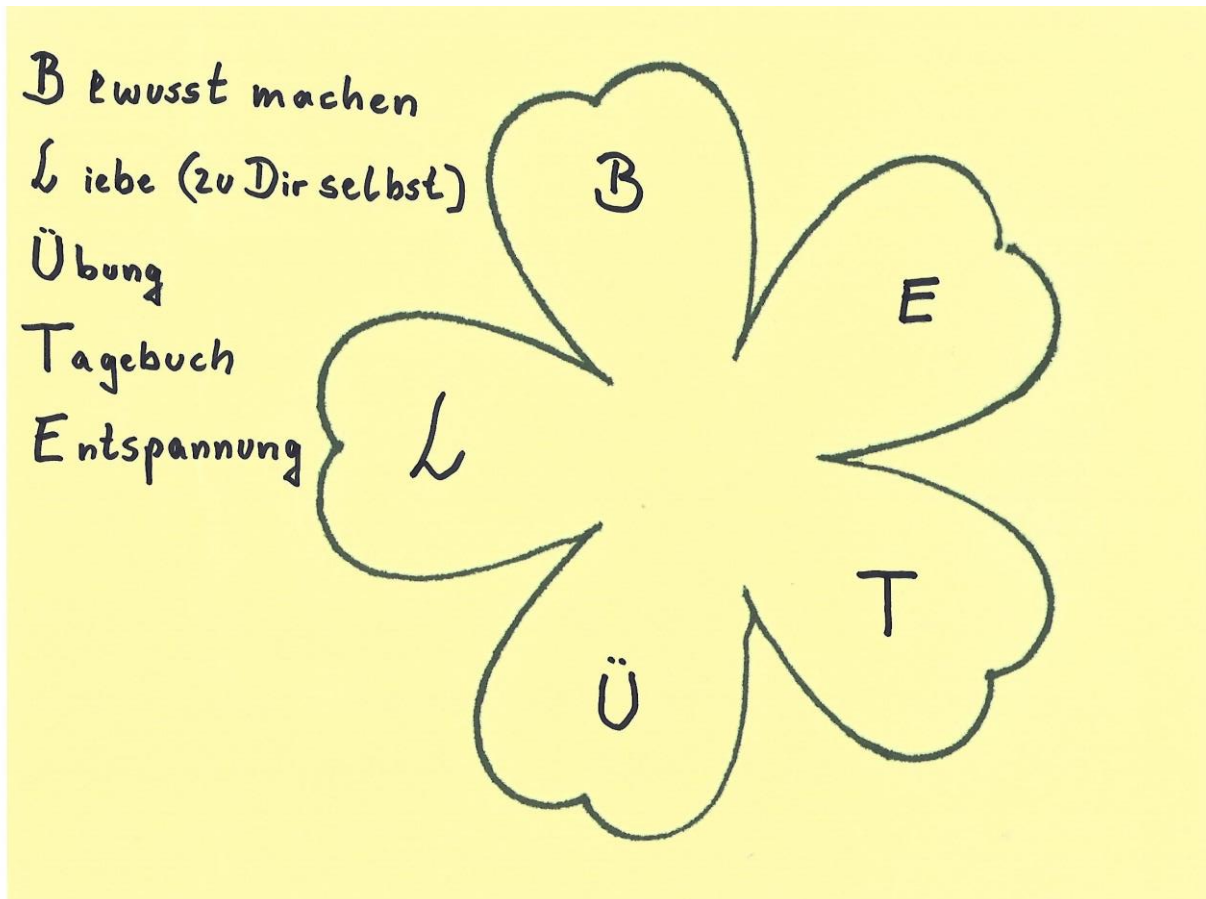 Bewusst machen
Liebe (zu Dir selbst)
Übung
Tagebuch
Entspannung
B
E
L
T
Ü